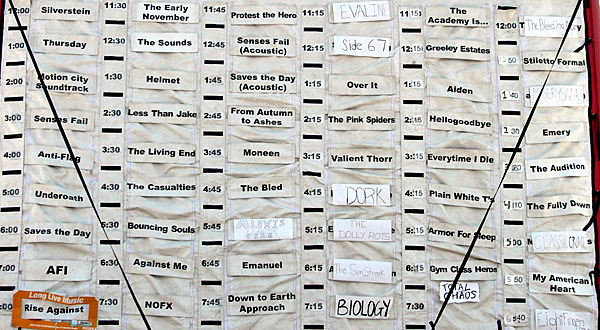 12:00 Silverstein 11:30 The Early November 11:45 Protest the Hero 11:15 EVALINE 11:15 The Academy Is... 12:00 The Bleeding
1:00 Thursday 12:30 The Sounds 12:45 Senses Fail (Acoustic) 12:15 Side 67 12:15 Greeley Estates 12:50 Stiletto Formal
2:00 Motion city Soundtrack 1:30 Helmet 1:45 Saves the Day (Acoustic) 1:15 Over It 1:15 Aiden 1:40
3:00 Senses Fail 2:30 Less Than Jake 2:45 From Autumn to Ashes 2:15 The Pink Spiders 2:15 Hellogoodbye 2:30 Emery
4:00 Anti-Flag 3:30 The Living End 3:45 Moneen 3:15 Valient Thorr 3:15 Everytime I Die The Audition
5:00 Underoath 4:30 The Casualties 4:45 The Bled 4:15 DORK 4:15 Plain White T's 4:10 The Fully Down
6:00 Saves the Day 5:30 Bouncing Souls 5:45 5:15 THE DOLLY ROTS 5:15 Armor For Sleep 5:00 CLASSIC CRIME
7:00 AFI 6:30 Against Me 6:45 Emanuel 6:15 The Sun Streak 6:15 Gym Class Heros 5:50 My American Heart
Long Live Music Rise Against 7:30 NOFX 7:45 Down to Earth Approach 7:15 BIOLOGY 7:30 TOTAL CHAOS 6:40 Eight Fingers